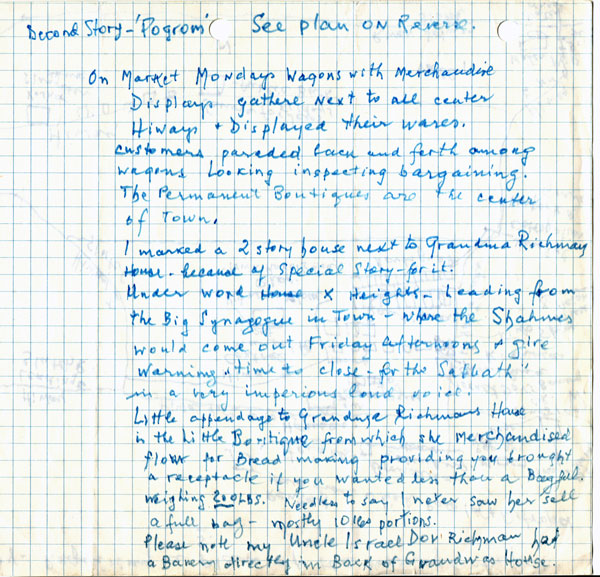 Second Story - 'Pogrom' See plan on Reverse.
On Market Mondays Wagons with Merchandise
Displays gathere Next to all center
Hiways + Displayed their wares.
customers paraded back and forth among
wagons looking inspecting bargaining.
The Permanent Boutiques are the center
of Town.
I marked a 2 story house next to Grandma Richman
House - because of Special Story - for it.
Under word House X Heights - Leading from
the Big Synagogue in Town - where the Shahmes
would come out Friday afternoons + give
warning "time to close - for the Sabbath"
in a very imperious loud voice.
Little appendage to Grandma Richmans House
is the Little Boutique from which she Merchandised
flour for Bread making providing you brought
a receptacle if you wanted less than a Bagful.
weighing 200 LBS. Needless to say I never saw her sell
a full bag - mostly 10 lbs portions.
Please note my Uncle Israel Dov Richman had
a Bakery directly in Back of Grandma's House.